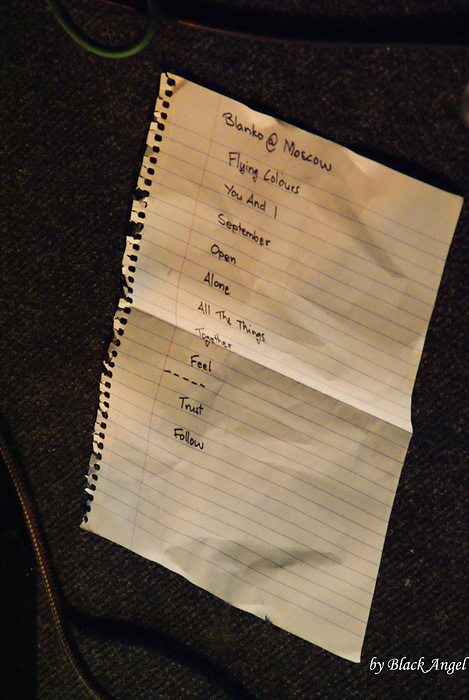 Blanko @ Moscow
Flying Colours
You And I
September
Open
Alone
All The Things
Together
Feel
-----
Trust
Follow
by Black Angel